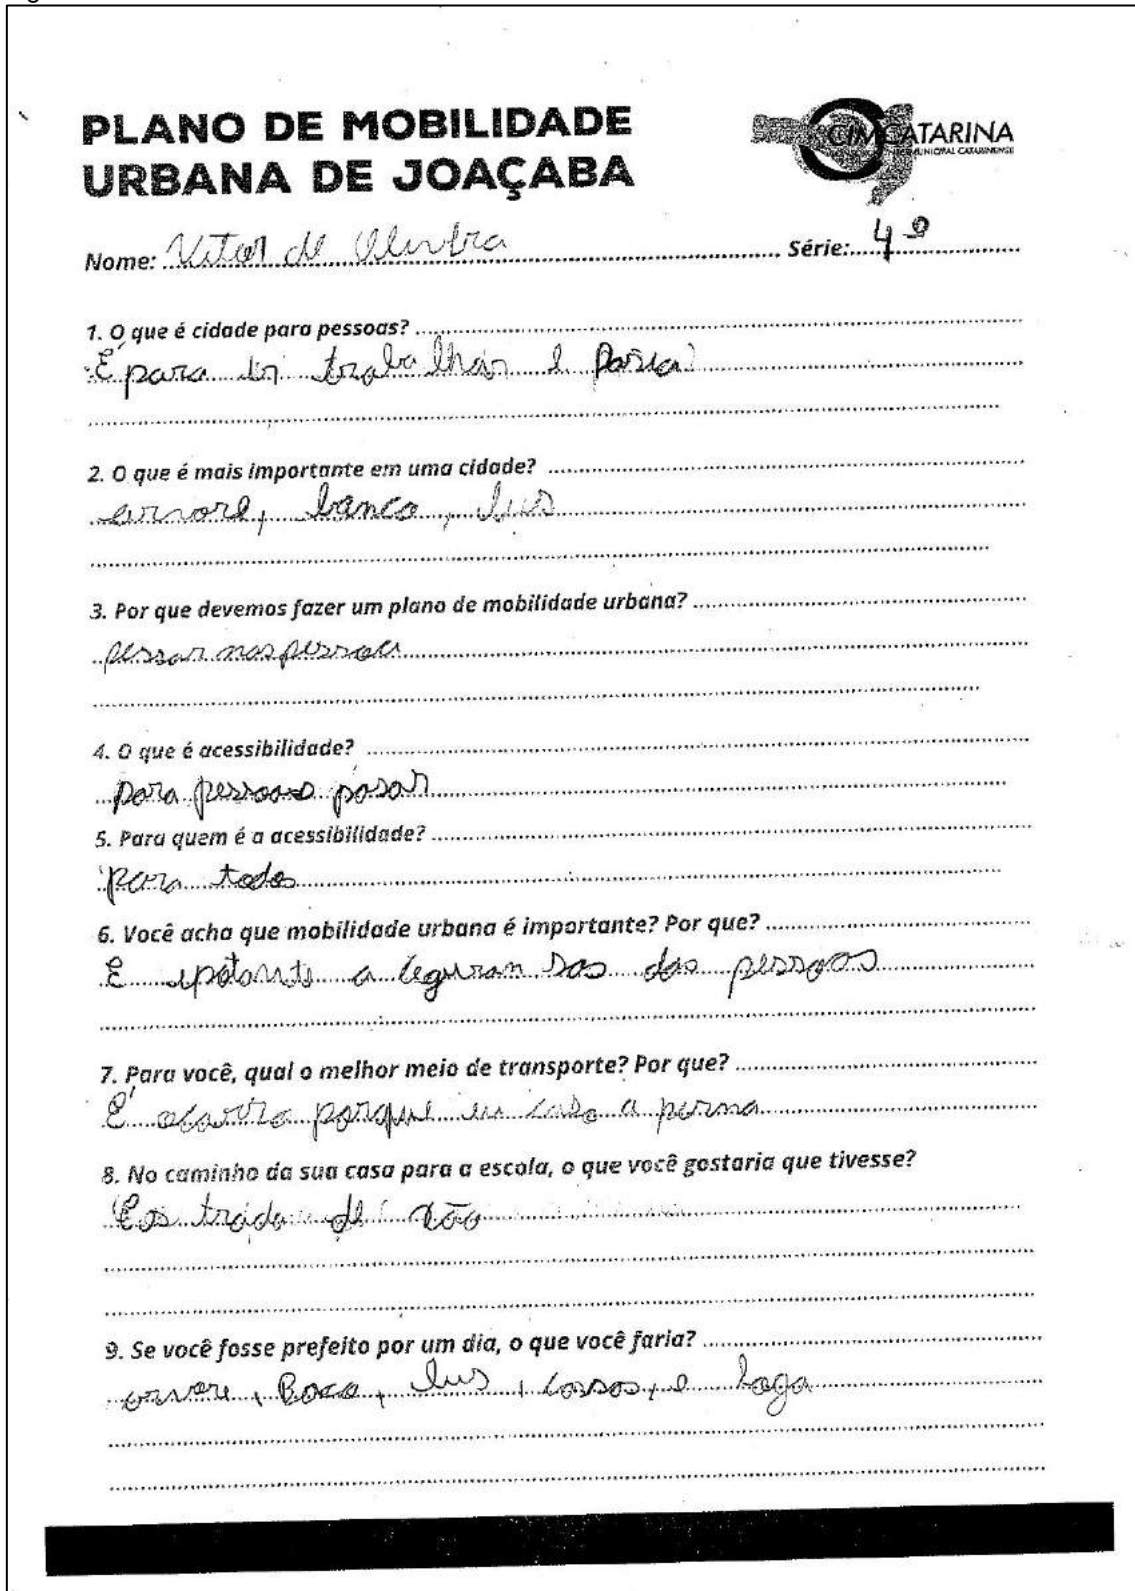 PLANO DE MOBILIDADE
URBANA DE JOAÇABA
CIMCATARINA
Nome: Vitor de Série: 4º
1. O que é cidade para pessoas?
É para ir trabalhar e
2. O que é mais importante em uma cidade?
arvore, banco, lus
3. Por que devemos fazer um plano de mobilidade urbana?
pessar nas pessoa
4. O que é acessibilidade?
para pessoas pasar
5. Para quem é a acessibilidade?
para todos
6. Você acha que mobilidade urbana é importante? Por que?
E a seguran sas das pessoas
7. Para você, qual o melhor meio de transporte? Por que?
É ocarro porque eu a perna
8. No caminho da sua casa para a escola, o que você gostaria que tivesse?
de
9. Se você fosse prefeito por um dia, o que você faria?
arvore, lus, e